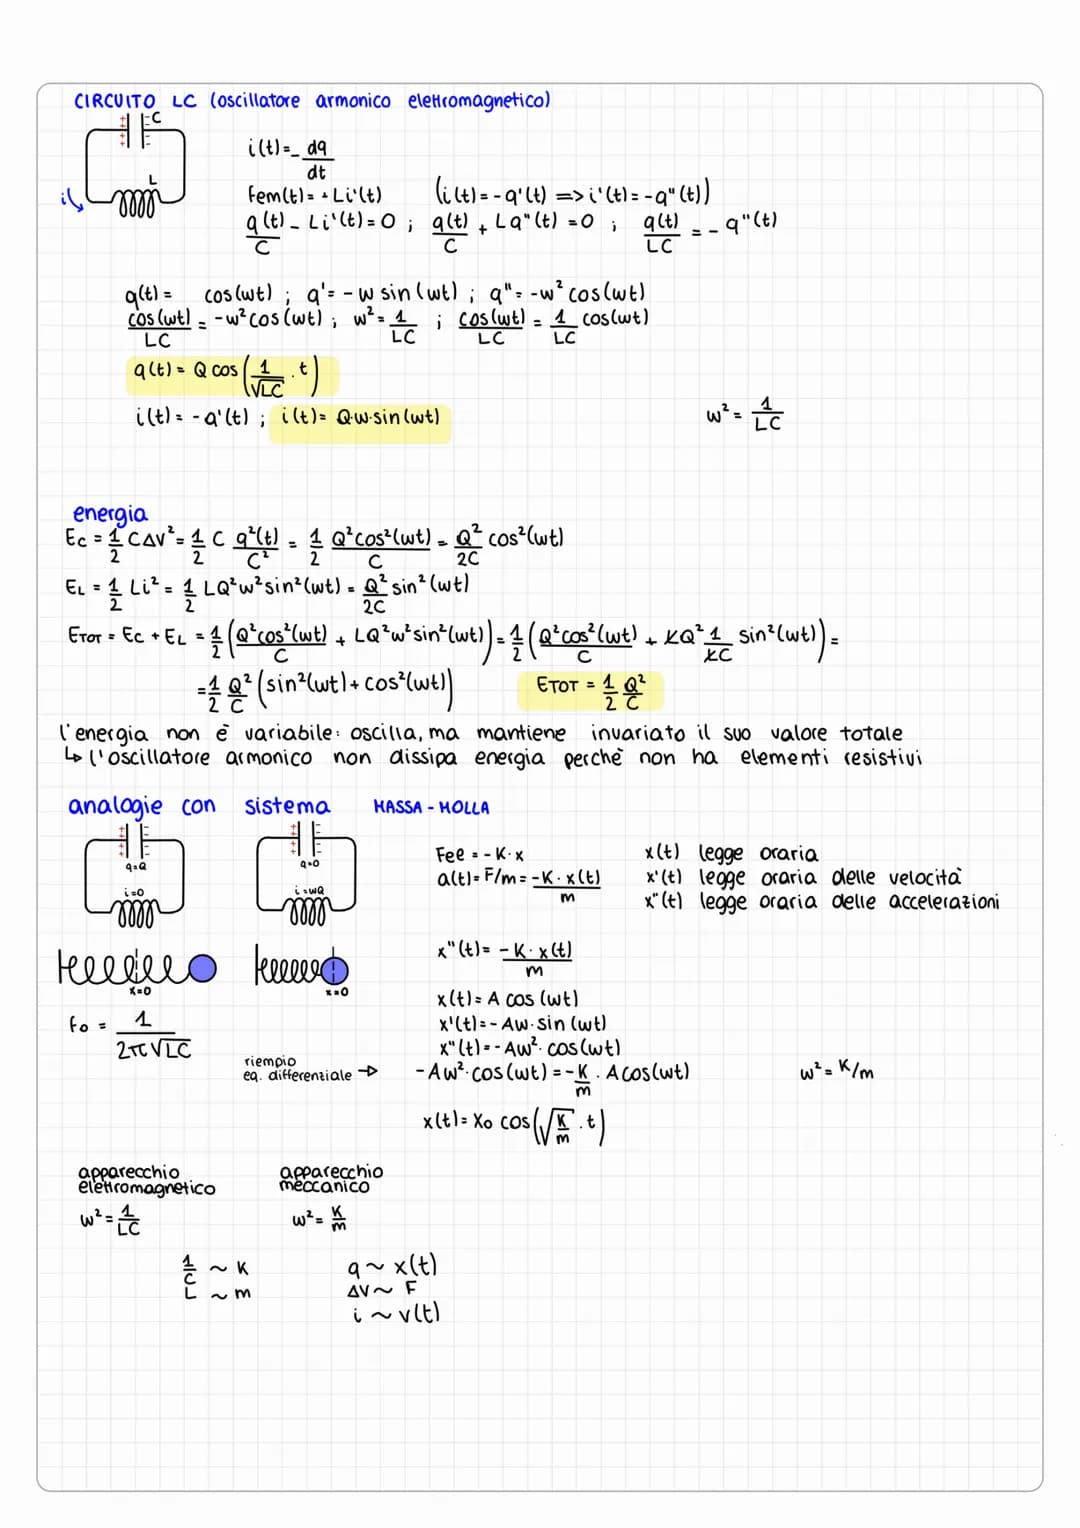 CIRCUITO LC (oscillatore armonico elettromagnetico)
C
L
i
i(t)=-dq/dt
fem(t)= + Li'(t) (i(t)=-q'(t) => i'(t)=-q"(t))
q(t)/C - Li'(t)=0 ; q(t)/C + Lq"(t)=0 ; q(t)/LC = -q"(t)
q(t)= cos(wt) ; q'= -w sin(wt) ; q"= -w² cos(wt)
cos(wt)/LC = -w² cos(wt) ; w²= 1/LC ; cos(wt)/LC = 1/LC cos(wt)
q(t)= Q cos(1/√LC · t)
i(t)= -q'(t) ; i(t)= Q·w·sin(wt) w²= 1/LC
energia
Ec = 1/2 C∆V² = 1/2 C q²(t)/C² = 1/2 Q²cos²(wt)/C = Q²/2C cos²(wt)
EL = 1/2 Li² = 1/2 LQ²w²sin²(wt) = Q²/2C sin²(wt)
ETOT = Ec + EL = 1/2 (Q²cos²(wt)/C + LQ²w²sin²(wt)) = 1/2 (Q²cos²(wt)/C + LQ² 1/LC sin²(wt)) =
= 1/2 Q²/C (sin²(wt) + cos²(wt)) ETOT = 1/2 Q²/C
l'energia non è variabile: oscilla, ma mantiene invariato il suo valore totale
↳ l'oscillatore armonico non dissipa energia perchè non ha elementi resistivi
analogie con sistema MASSA - MOLLA
q=Q
i=0
q=0
i=wQ
x=0
x=0
Fee = -K·x x(t) legge oraria
a(t)= F/m = -K·x(t)/m x'(t) legge oraria delle velocità
x"(t) legge oraria delle accelerazioni
x"(t)= -K·x(t)/m
x(t)= A cos (wt)
fo = 1/2π√LC
x'(t)= -Aw·sin (wt)
x"(t)= -Aw²·cos(wt)
riempio
eq. differenziale → -Aw²·cos(wt) = -K/m · A cos(wt) w²= K/m
x(t)= Xo cos(√K/m · t)
apparecchio elettromagnetico
apparecchio meccanico
w² = 1/LC w² = K/m
1/C ~ K q ~ x(t)
L ~ m ∆V ~ F
i ~ v(t)